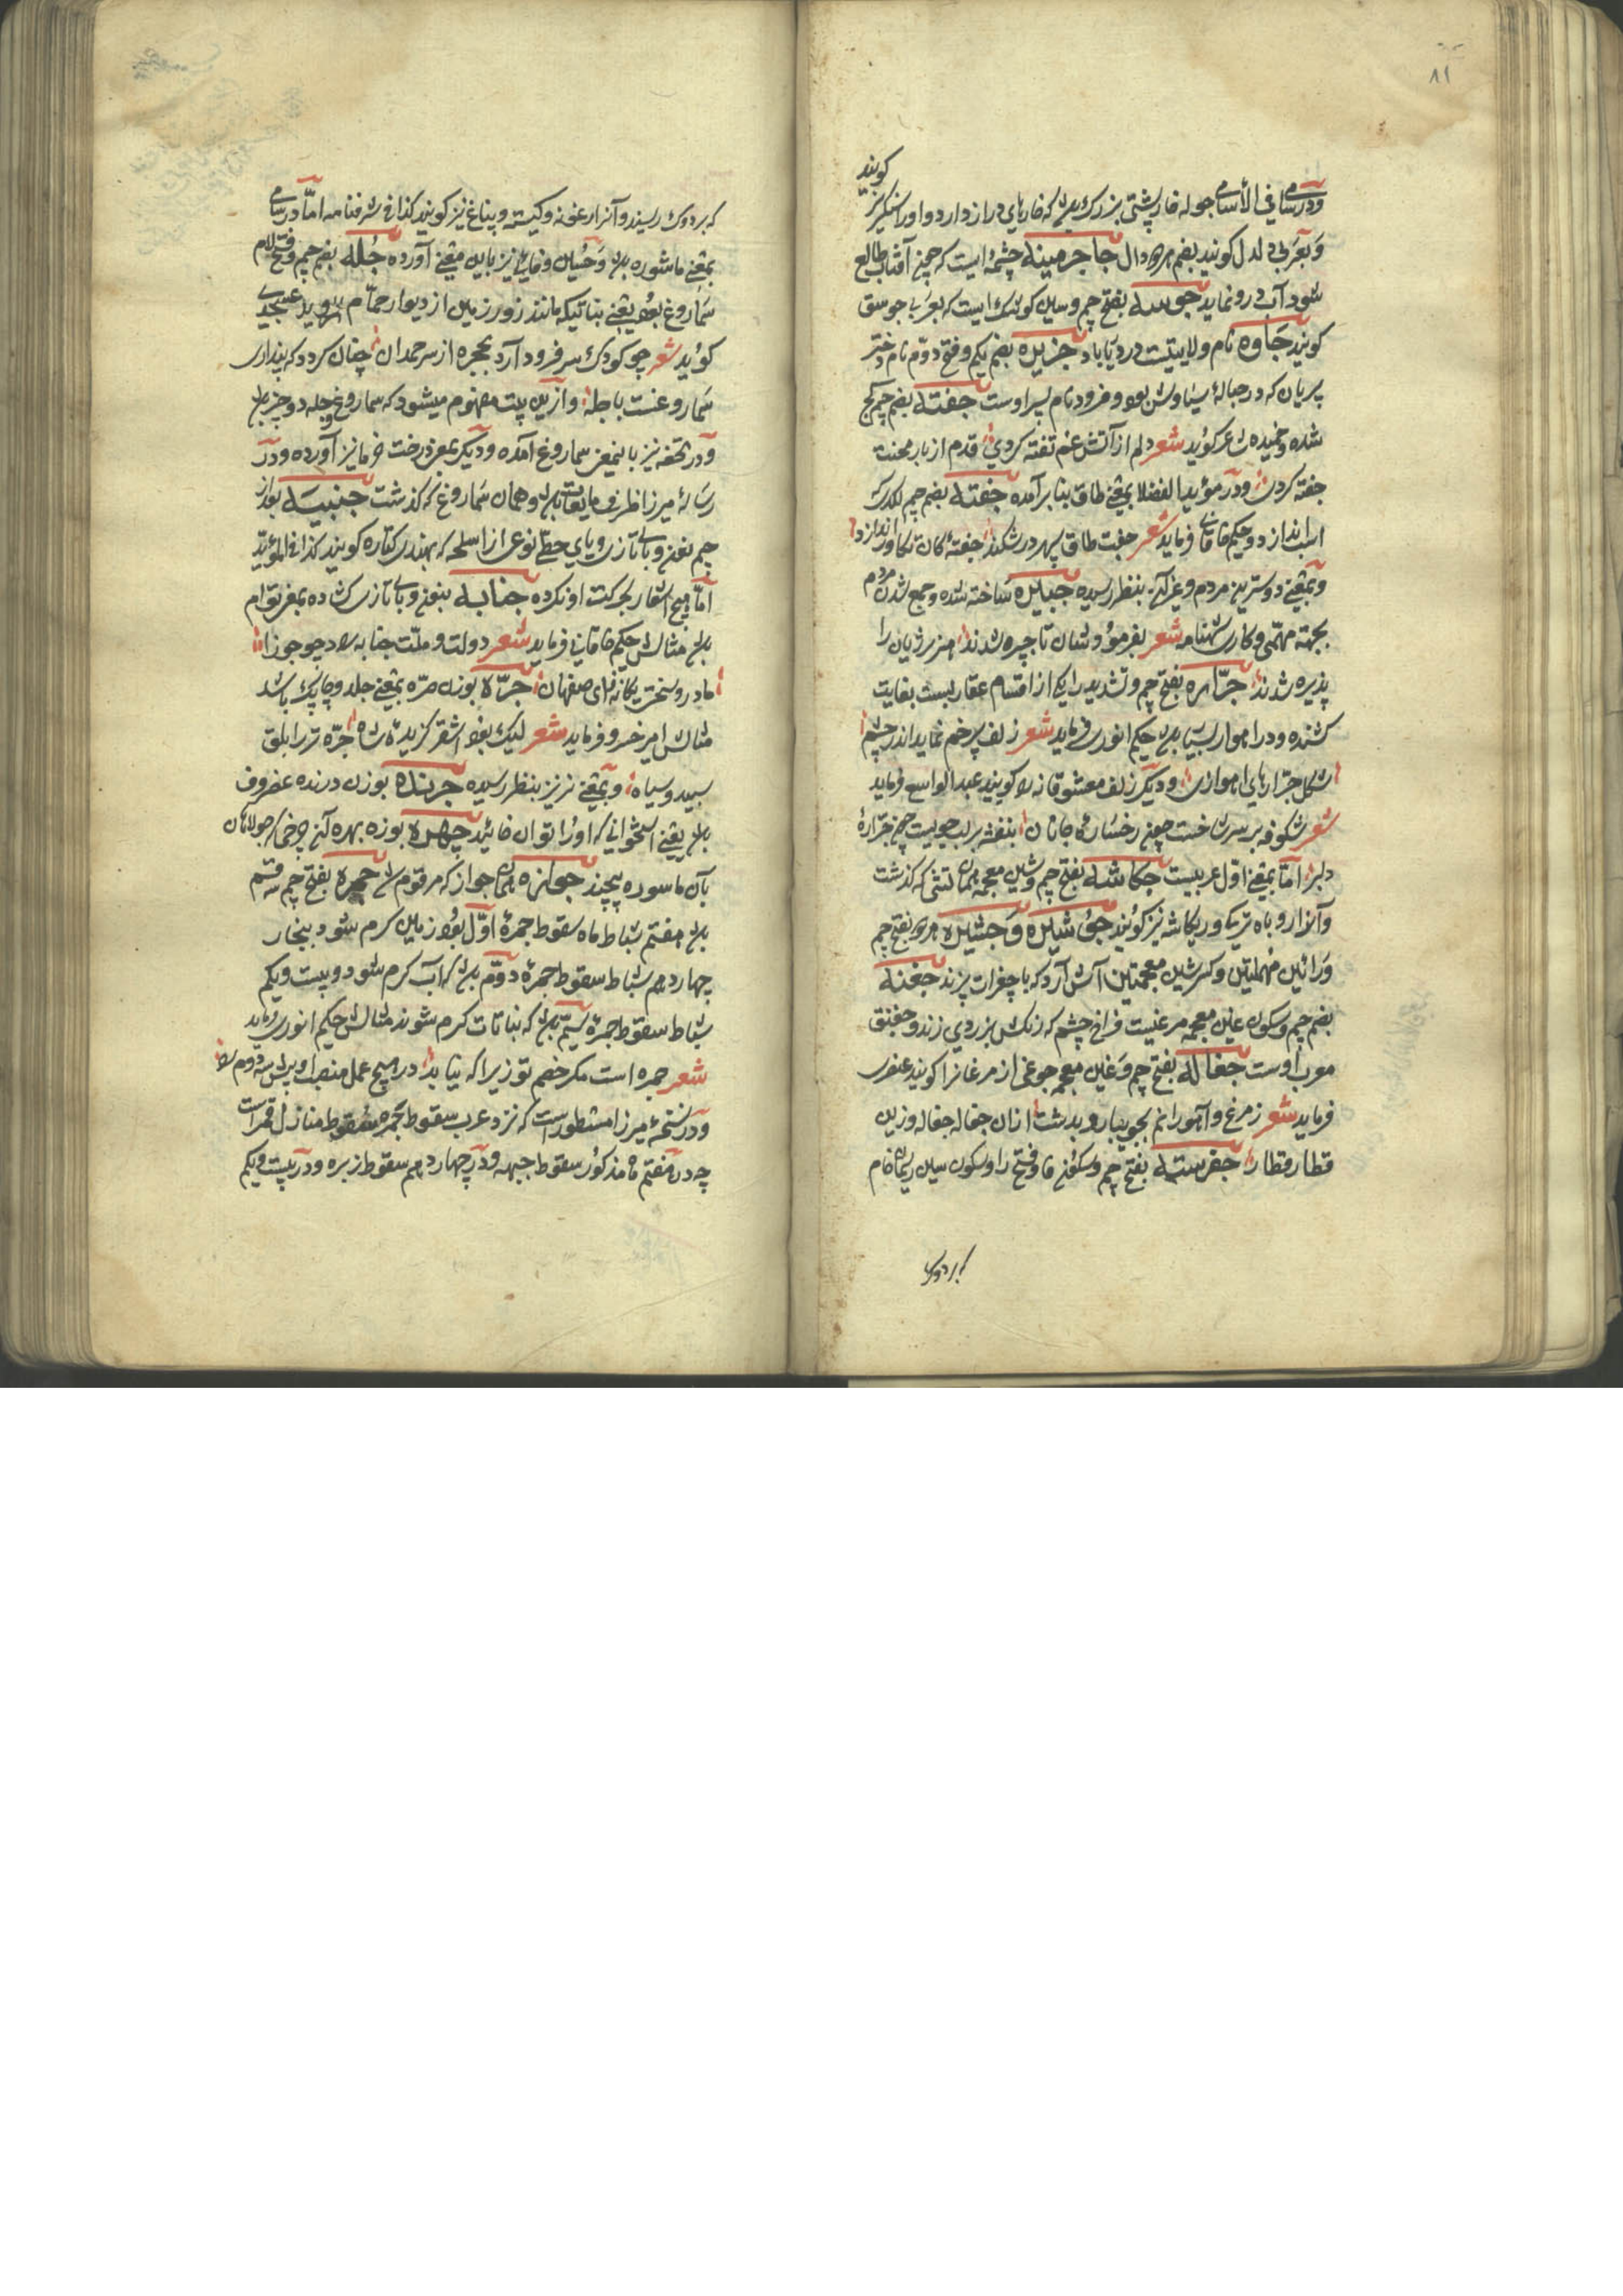 ۸۱
گویند
ودر سامی فی الأسامی جوله خارپشتی بزرك بود که خارهای دراز دارد و اورا سنگریز
وبعربی دلدل گویند بضم هردو دال جاجرمینه چشمهٔ ایست که چون آفتاب طالع
شود آب درو نماید جوسه بفتح جیم وسین کوشك است که بعربی جوسق
گویند جاوه نام ولایتیست در دریاباد جزیره بضم یکم وفتح دوم نام دختر
پریان که در حبالهٔ سیاوش بود و فرود نام پسر اوست جفته بضم جیم کج
شده وخمیده شاعر گوید شعر دلم از آتش غم تفته کردی قدم از بار محنت
جفته کردی ودر مؤید الفضلا بمعنی طاق بنا برآمده جفته بضم جیم لگد که
اسب اندازد وحکیم خاقانی فرماید شعر جفت طاق سپهر درشکند جفتهٔ کان تکاور اندازد
وبمعنی دو سرین مردم وغیر آن بنظر رسیده جبیره ساخته شده وجمع شدن مردم
بجهة مهمی وکاری شهنامه شعر بفرمود وشان تا جبیره شدند هزبر ژیان را
پذیره شدند جرّاره بفتح جیم وتشدید را یکی از اقسام عقاربست بغایت
کشنده ودر اهواز بسیار بود حکیم انوری فرماید شعر زلف پرخم نماید اندر چشم
شکل جرّارهای اهوازی ودیگر زلف معشوقانه را گویند عبد الواسع فرماید
شعر شکوفه بر سر شاخست چون رخسارهٔ جانان بنفشه بر لب جویست چون جرّارهٔ
دلبر امّا بمعنی اوّل عربیست جکاشه بفتح جیم وشین معجمه همان تشی که گذشت
وآنرا روباه ترکی وریکاشه نیز گویند
ورائین مهملتین وکسر شین معجمتین آش آرد که با جغرات پزند جغنه
بضم جیم وسکون غین معجمه مرغیست فراخ چشم که رنگش بزردی زند وجغنق
معرب اوست جغاله بفتح جیم وغین معجمه جوغی از مرغانرا گویند عنصری
فرماید شعر ز مرغ وآهو رانم بجویبار وبدشت ازان جغاله جغاله وزین
قطار قطار جفرسته بفتح جیم وسکون فا وفتح را وسکون سین ریسمان خام
بر دوك
که بر دوك ریسند وآنرا
بمعنی ماشوره بود وحسین وفایی نیز باین معنی آورده جُله بضم جیم وفتح لام
سماروغ بود یعنی نباتیکه مانند زور زمین از دیوار حمّام روید عسجدی
گوید شعر چو کودك سر فرود آرد بحجره از سرحمدان چنان گردد که پنداری
سماروغست با جله وازین بیت مفهوم میشود که سماروغ وجله دو چیز بود
ودر تحفه نیز باینمعنی سماروغ آمده ودیگر بمعنی درخت خرما نیز آورده ودر
رسالهٔ میرزا ظرفی مایعات بود وهمان سماروغ که گذشت جنبیه بعد از
جیم نون وبای تازی ویای حطی نوعی از اسلحه که بهندی کتاره گویند کذا فی المؤید
امّا هیچ اشعار بحرکت او نکرده جنابه بنون وبای تازی کشاده بمعنی توام
بود مثالش حکیم خاقانی فرماید شعر دولت وملّت جنابه زاد چو جوزا
مادر وسخت یگانه زای صفهان جرّه بوزن ضرّه بمعنی جلد وچابك باشد
مثالش امیر خسرو فرماید شعر لیك بفرا اشقر گزیدهٔ شاه جرّه تر ابلق
سپید وسیاه وبمعنی نر نیز بنظر رسیده جرنده بوزن درنده غضروف
بود یعنی استخوانی که اورا توان خائید جهره بوزن بهره آن چرخی که جولاهان
بآن ماسوره پیچند جوازه همان جواز که مرقوم شد جمره بفتح جیم سه قسم
بود هفتم شباط ماه سقوط جمرهٔ اوّل بود وزمین گرم شود
چهاردهم شباط سقوط جمرهٔ دوّم بود که آب گرم شود وبیست ویکم
شباط سقوط جمرهٔ سیّم بود که نباتات گرم شوند مثالش حکیم انوری فرماید
شعر جمره است مگر خصم تو زیرا که نیابد در هیچ عمل منصب او بیش سه دوم
ودر نسخهٔ میرزا مسطورست که نزد عرب سقوط جمره سقوط منازل قمر است
چه در هفتم ماه مذکور سقوط جبهه ودر چهاردهم سقوط زبره ودر بیست ویکم